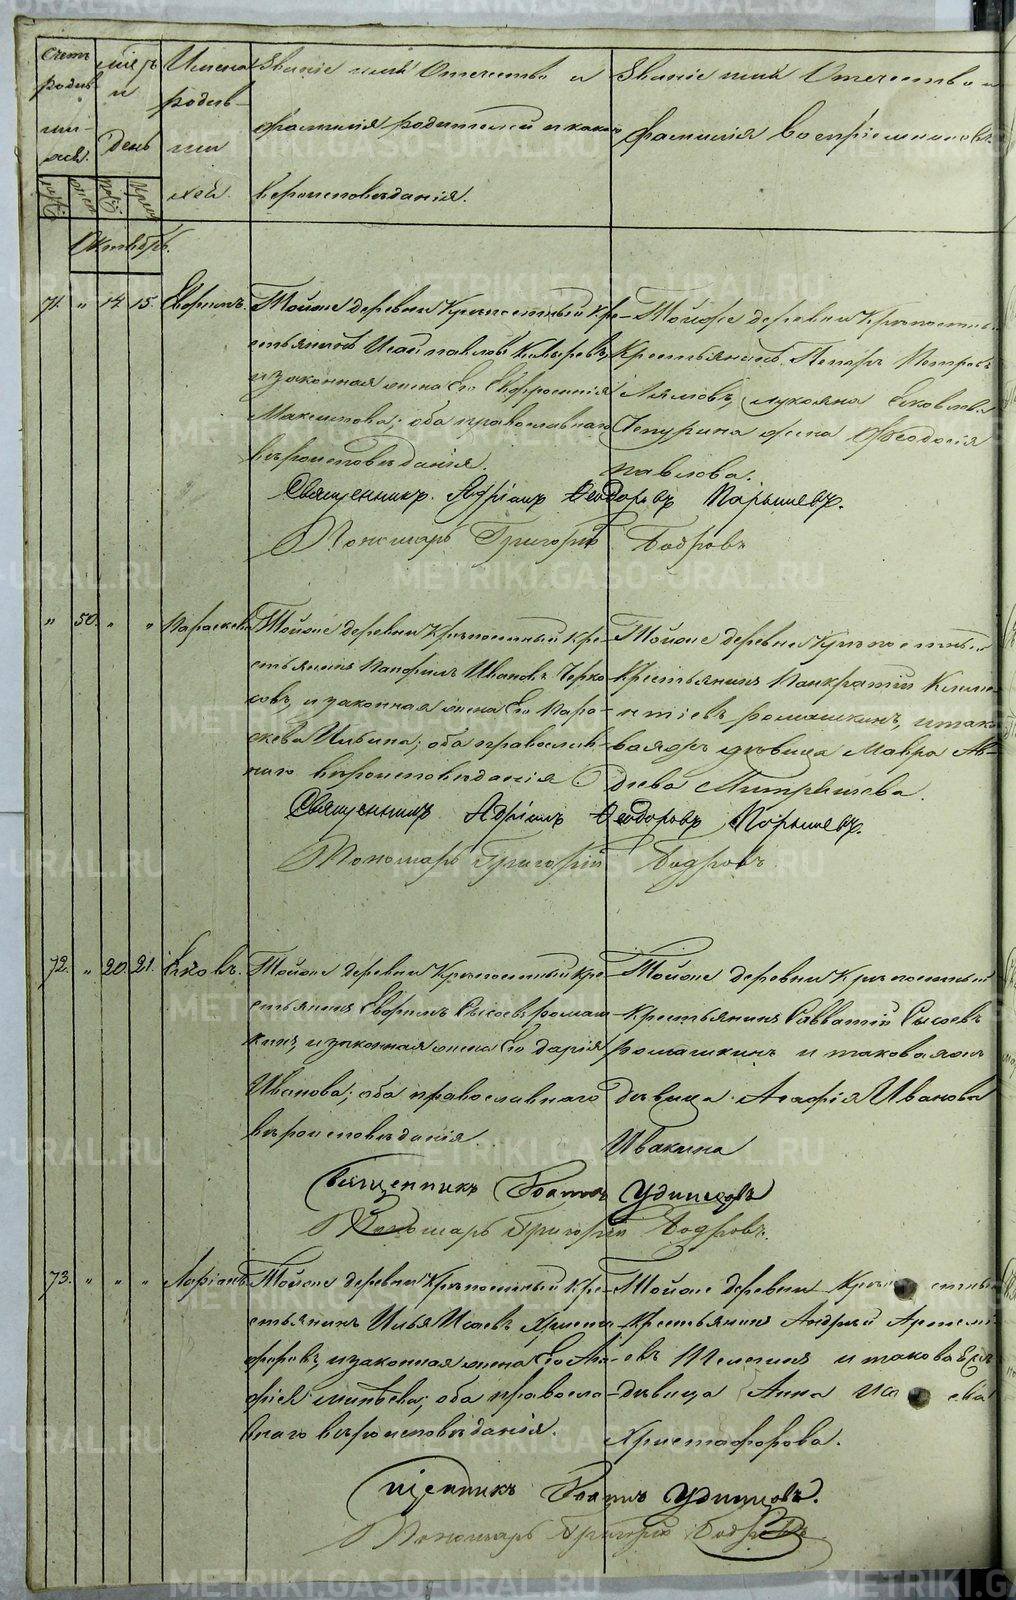 Счетъ родив-шихся.
Мѣсяцъ и День
Имена родив-шихся.
Званіе имя Отчество и
фамилія родителей и какого
вѣроисповѣданія.
Званіе имя Отчество и
фамилія Воспріемниковъ.
Октябрь.
71. " 14. 15. Ефримъ.
Тойже деревни Крѣпостный Кре-
стьянинъ Исай Павловъ
и законная жена Его Евфросинія
Максимова; оба православнаго
вѣроисповѣданія.
Тойже деревни Крѣпостный
Крестьянинъ Петръ Петровъ
жена Феодосія
Павлова.
Священникъ Адріанъ Феодоровъ Парышевъ.
Пономарь Григорій Бодровъ
" 50. " " Параскева
Тойже деревни Крѣпостный Кре-
стьянинъ Панфилъ Ивановъ Черка-
совъ, и законная жена Его Пара-
скева Ильина; оба православ-
наго вѣроисповѣданія.
Тойже деревни Крѣпостный
Крестьянинъ Панкратій Климе-
нтіевъ Ромашкинъ, и тако-
ваяжъ дѣвица Мавра Ав-
деева Митряшева.
Священникъ Адріанъ Феодоровъ Парышевъ.
Пономарь Григорій Бодровъ
72. " 20. 21. Іаковъ.
Тойже деревни Крѣпостный Кре-
стьянинъ Ефримъ Сысоевъ Ромаш-
кинъ, и законная жена Его Дарія
Иванова; оба православнаго
вѣроисповѣданія.
Тойже деревни Крѣпостный
Крестьянинъ Савватій Сысоевъ
Ромашкинъ и таковаяжъ
дѣвица Агафія Иванова
Ивакина
Священникъ Іоаннъ Удинцовъ
Пономарь Григорій Бодровъ.
73. " " " Ларіонъ
Тойже деревни Крѣпостный Кре-
стьянинъ Илья Исаевъ Христо-
форовъ, и законная жена Его Ага-
фія оба правосла-
внаго вѣроисповѣданія.
Тойже деревни Крѣпостный
Крестьянинъ Андрей Артемі-
евъ Телегинъ и таковаяжъ
дѣвица Анна Исаева
Христофорова.
Священникъ Іоаннъ Удинцовъ.
Пономарь Григорій Бодровъ
METRIKI.GASO-URAL.RU